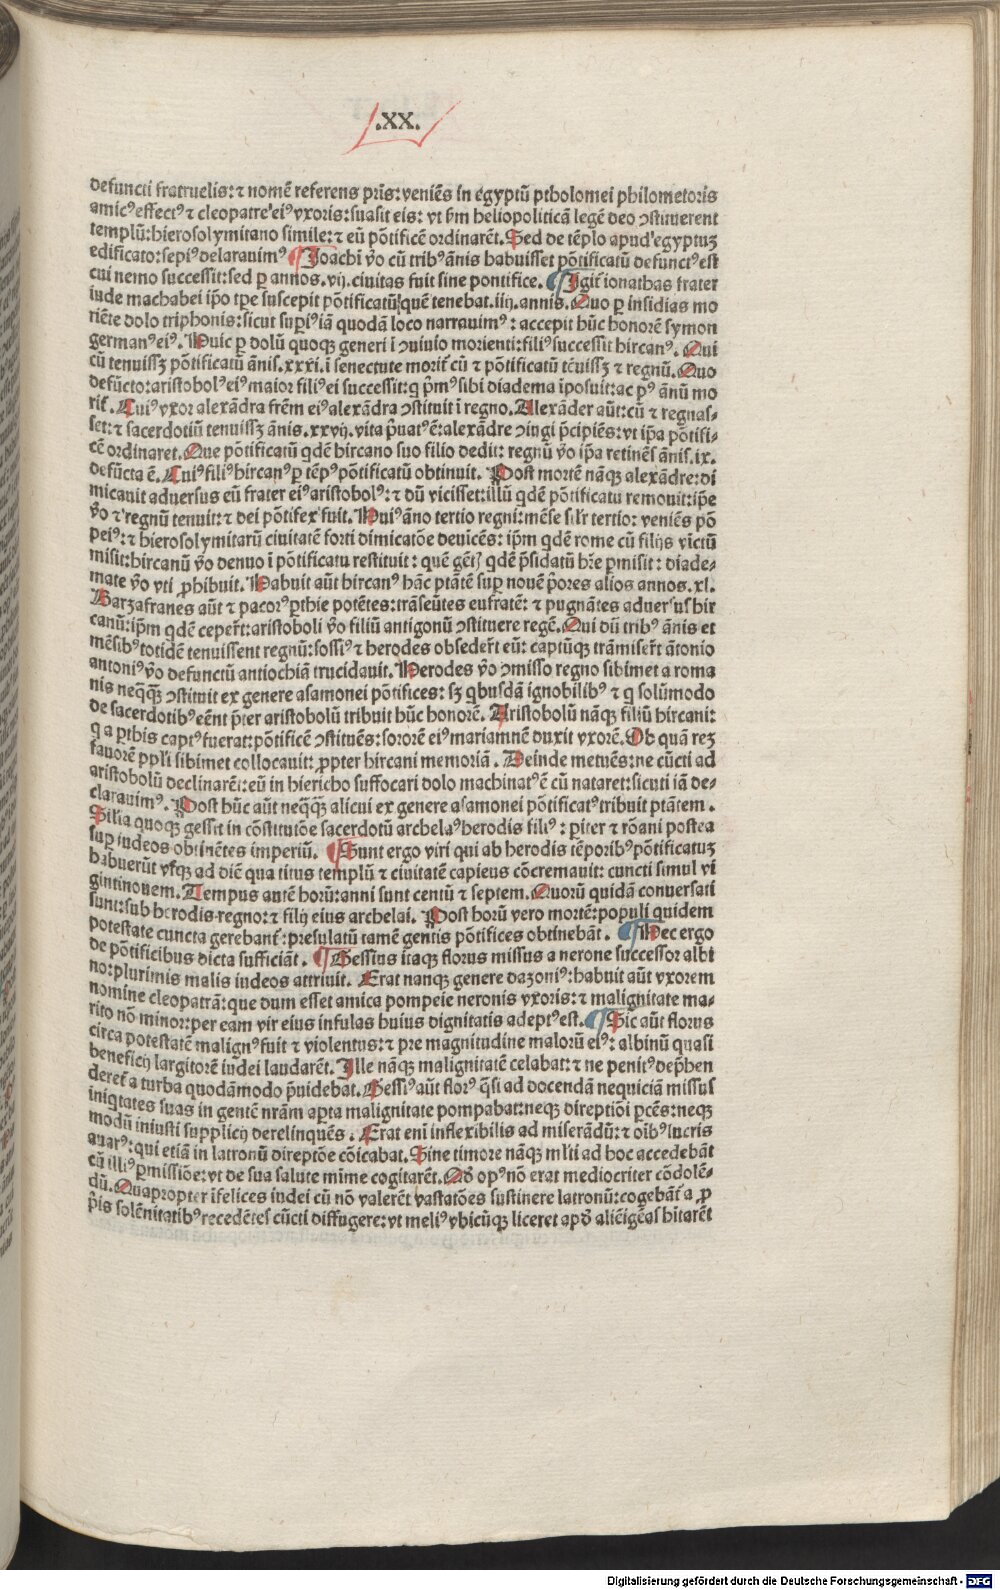 .XX.
defuncti fratruelis: ⁊ nomē referens pr̄is: veniēs in egyptū ptholomei philometoris
amicꝰ effectꝰ ⁊ cleopatre eiꝰ vxoris: suasit eis: vt ẜm heliopoliticā legē deo ꝯstituerent
templū: hierosolymitano simile: ⁊ eū pōtificē ordinarēt. Sed de tēplo apud egyptuʒ
edificato: sepiꝰ declarauimꝰ ¶ Joachi v̄o cū tribꝰ ānis habuisset pōtificatū defunctꝰ est
cui nemo successit: sed ꝑ annos .vij. ciuitas fuit sine pontifice. ¶ Igit̄ ionathas frater
iude machabei ip̄o tꝑe suscepit pōtificatū: quē tenebat .iiij. annis. Quo ꝑ insidias mo
riēte dolo triphonis: sicut suꝑiꝰ iā quodā loco narrauimꝰ: accepit hūc honorē symon
germanꝰ eiꝰ. Huic ꝑ dolū quoqꝫ generi ī ꝯuiuio morienti: filiꝰ successit hircanꝰ. Qui
cū tenuissꝫ pōtificatū ānis .xxxi. ī senectute morit̄ cū ⁊ pōtificatū tēuissꝫ ⁊ regnū. Quo
defūcto: aristobolꝰ eiꝰ maior filiꝰ ei successit: q p̄mꝰ sibi diadema īposuit: ac pꝰ ānū mo
rit̄. Cuiꝰ vxor alexādra fr̄em eiꝰ alexādrū ꝯstituit ī regno. Alexāder aūt: cū ⁊ regnas-
set: ⁊ sacerdotiū tenuissꝫ ānis .xxvij. vita p̄uatꝰ ē: alexādre ꝯiugi p̄cipiēs: vt ip̄a pōtifi-
cē ordinaret. Que pōtificatū qdē hircano suo filio dedit: regnū v̄o ip̄a retinēs ānis .ix.
defūcta ē. Cuiꝰ filiꝰ hircanꝰ ꝑ tēpꝰ pōtificatū obtinuit. Post mortē nāqꝫ alexādre: di
micauit aduersus eū frater eiꝰ aristobolꝰ: ⁊ dū vicisset: illū qdē pōtificatu remouit: ip̄e
v̄o ⁊ regnū tenuit: ⁊ dei pōtifex fuit. Huiꝰ āno tertio regni: mēse sil̄r tertio: veniēs pō
peiꝰ: ⁊ hierosolymitarū ciuitatē forti dimicatōe deuicēs: ip̄m qdē rome cū filijs vīctū
misit: hircanū v̄o denuo ī pōtificatu restituit: quē gētꝭ qdē p̄sidatū hr̄e ꝑmisit: diade-
mate v̄o vti ꝓhibuit. Habuit aūt hircanꝰ hāc ptātē suꝑ nouē p̄ores alios annos .xl.
Barzafranes aūt ⁊ pacorꝰ pthie potētes: trāseūtes eufratē: ⁊ pugnātes aduersus hir
canū: ip̄m qdē ceper̄t: aristoboli v̄o filiū antigonū ꝯstituere regē. Qui dū tribꝰ ānis et
mēsibꝰ totidē tenuissent regnū: sossiꝰ ⁊ herodes obseder̄t eū: captūqꝫ trāmiser̄t ātonio
antoniꝰ v̄o defunctū antiochiā trucidauit. Herodes v̄o ꝯmisso regno sibimet a roma
nis neqꝗꝫ ꝯstituit ex genere asamonei pōtifices: sꝫ qbusdā ignobilibꝰ ⁊ q solūmodo
de sacerdotibꝰ eēnt p̄ter aristobolū tribuit hūc honorē. Aristobolū nāqꝫ filiū hircani:
q a ꝑthis captꝰ fuerat: pōtificē ꝯstituēs: sororē eiꝰ mariamnē duxit vxorē. Ob quā reʒ
fauorē ppl̄i sibimet collocauit: ꝓpter hircani memoriā. Deinde metuēs: ne cūcti ad
aristobolū declinarēt: eū in hiericho suffocari dolo machinatꝰ ē cū nataret: sicuti iā de-
clarauimꝰ. Post hūc aūt neqꝗꝫ alicui ex genere asamonei pōtificatꝰ tribuit ptātem.
Silia quoqꝫ gessit in cōstitutōe sacerdotū archelaꝰ herodis filiꝰ: piter ⁊ rōani postea
suꝑ iudeos obtinētes imperiū. ¶ Sunt ergo viri qui ab herodis tēporibꝰ pōtificatuʒ
habuerūt vsqꝫ ad diē qua titus templū ⁊ ciuitatē capieus cōcremauit: cuncti simul vi
gintinouem. Tempus autē horū: anni sunt centū ⁊ septem. Quorū quidā conuersati
sunt: sub herodis regno: ⁊ filij eius archelai. Post horū vero mortē: populi quidem
potestate cuncta gerebant̄: presulatū tamē gentis pōtifices obtinebāt. ¶ Hec ergo
de pōtificibus dicta sufficiāt. ¶ Gessius itaqꝫ florus missus a nerone successor albi
no: plurimis malis iudeos attriuit. Erat nanqꝫ genere dazoniꝰ: habuit aūt vxorem
nomine cleopatrā: que dum esset amica pompeie neronis vxoris: ⁊ malignitate ma-
rito nō minor: per eam vir eius infulas huius dignitatis adeptꝰ est. ¶ Sic aūt florus
circa potestatē malignꝰ fuit ⁊ violentus: ⁊ pre magnitudine malorū eiꝰ: albinū quasi
beneficij largitorē iudei laudarēt. Ille nāqꝫ malignitatē celabat: ⁊ ne penitꝰ dep̄hen
deret̄ a turba quodāmodo p̄uidebat. Gessiꝰ aūt florꝰ q̄si ad docendā nequiciā missus
iniqtates suas in gentē nr̄am aꝑta malignitate pompabat: neqꝫ direptiōi ꝑcēs: neqꝫ
modū iniusti supplicij derelinquēs. Erat eni inflexibilis ad miserādū: ⁊ oībꝰ lucris
auarꝰ: qui etiā in latronū direptōe cōicabat. Sine timore nāqꝫ ml̄ti ad hoc accedebāt
cū illiꝰ ꝑmissiōe: vt de sua salute mīme cogitarēt. Qd̄ opꝰ nō erat mediocriter cōdolē-
dū. Quapropter īfelices iudei cū nō valerēt vastatōes sustinere latronū: cogebāt̄ a ꝓ
p̄is solēnitatibꝰ recedētes cūcti diffugere: vt meliꝰ vbicūqꝫ liceret apd̄ aliēigēas hītarēt
Digitalisierung gefördert durch die Deutsche Forschungsgemeinschaft - DFG